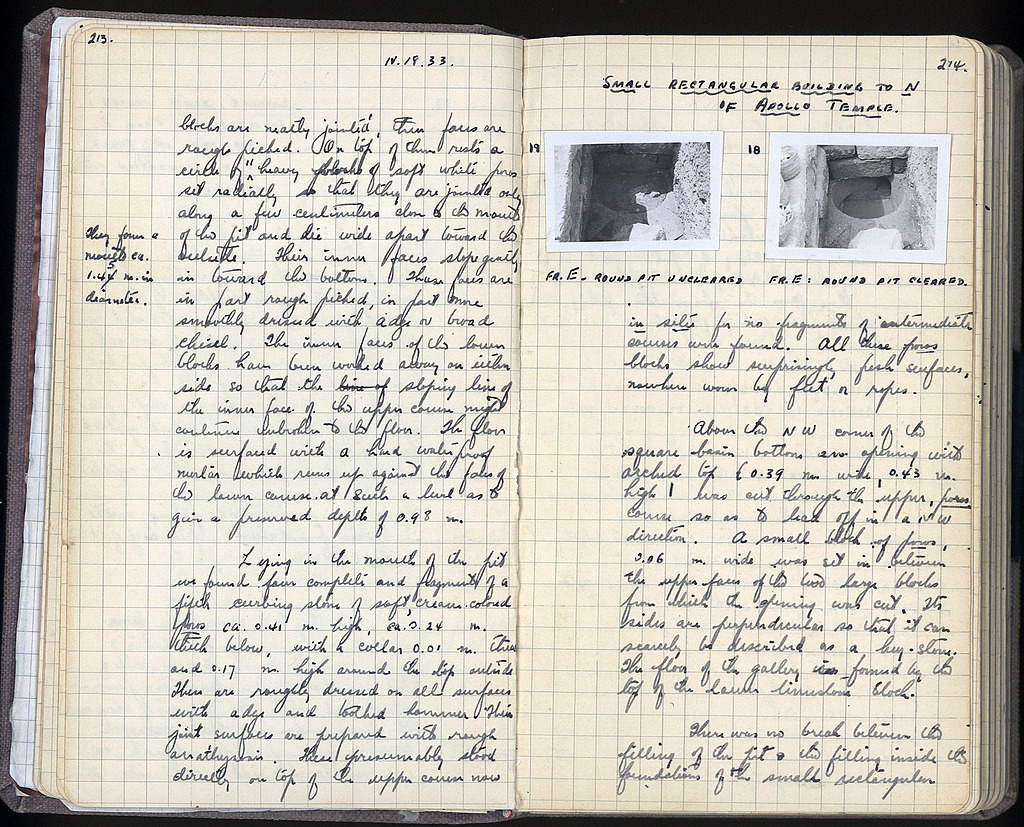 213.
IV.19.33.
blocks are neatly jointed, their faces are
rough picked. On top of them rests a
circle of 11 heavy blocks of soft white poros
set radially so that they are jointed only
along a few centimeters close to the mouth
of the pit and lie wide apart toward the
outside. Their inner faces slope gently
in toward the bottom. These faces are
in part rough picked, in part more
smoothly dressed with adze or broad
chisel. The inner faces of the lower
blocks have been worked away on either
side so that the line of sloping line of
the inner face of the upper course might
continue unbroken to the floor. The floor
is surfaced with a hard waterproof
mortar which runs up against the faces of
the lower course at such a level as to
give a preserved depth of 0.98 m.
They form a
mouth ca.
m. in
diameter.
Lying in the mouth of the pit
we found four complete and fragments of a
fifth curving stone of soft, cream-colored
poros ca. 0.41 m. high, ca. 0.24 m.
thick below, with a collar 0.01 m. thick
and 0.17 m. high around the top outside.
These are roughly dressed on all surfaces
with adze and toothed hammer. Their
joint surfaces are prepared with rough
anathyrosis. These presumably stood
directly on top of the upper course now
214.
SMALL RECTANGULAR BUILDING TO N
OF APOLLO TEMPLE.
19
18
FR. E - ROUND PIT UNCLEARED
FR. E: ROUND PIT CLEARED.
in situ for no fragments of intermediate
courses were found. All these poros
blocks show surprisingly fresh surfaces,
nowhere worn by feet or ropes.
Above the NW corner of the
square basin bottom an opening with
arched top (0.39 m. wide, 0.43 m.
high) was cut through the upper, poros
course so as to lead off in a NW
direction. A small block of poros,
0.06 m. wide was set in between
the upper faces of the two large blocks
from which the opening was cut. Its
sides are perpendicular so that it can
scarcely be described as a key-stone.
The floor of the gallery is formed by the
top of the lower limestone block.
There was no break between the
filling of the pit & the filling inside the
foundations of the small rectangular